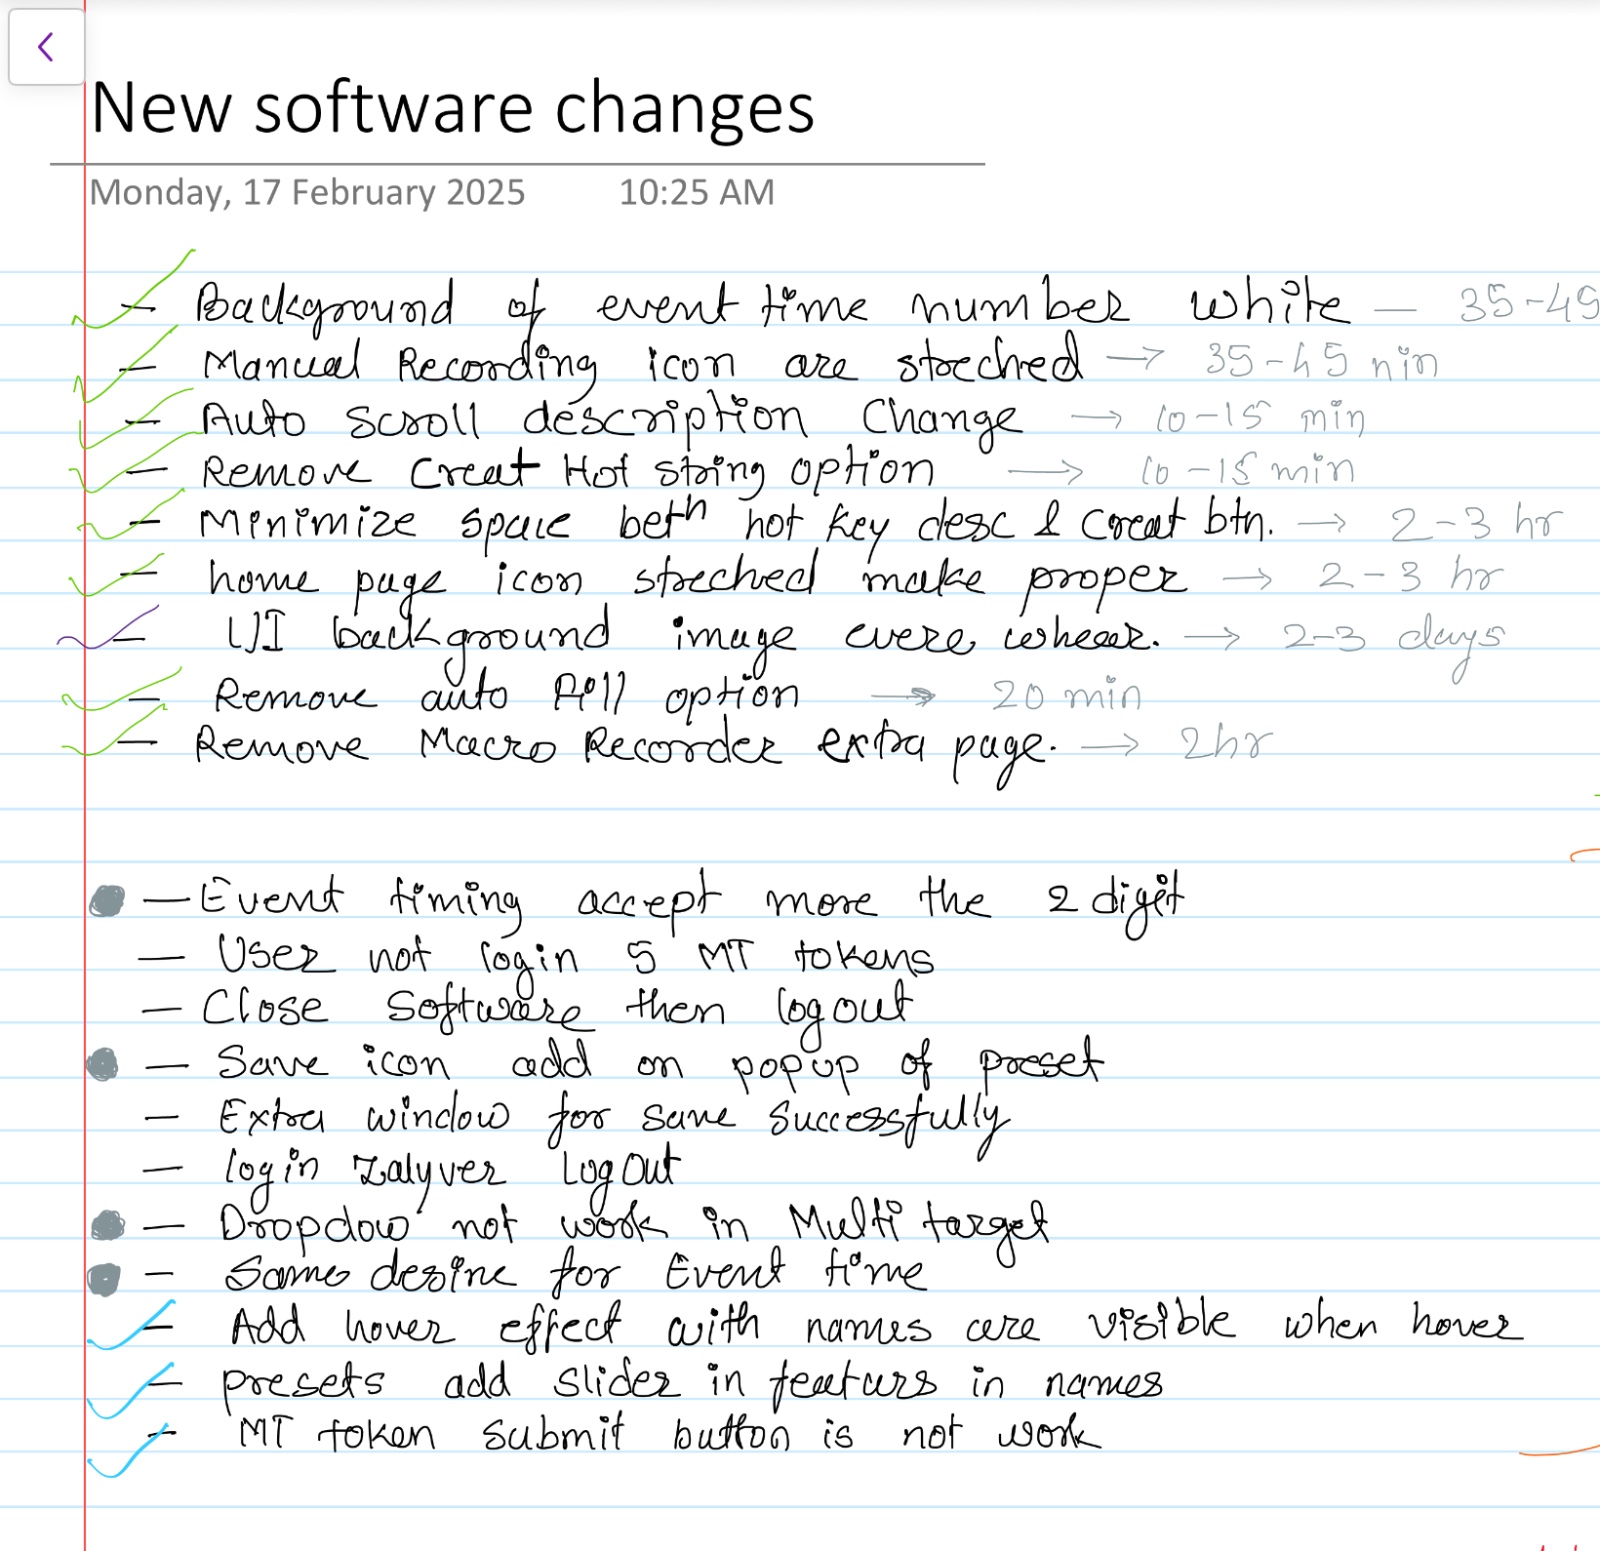 New software changes
Monday, 17 February 2025 10:25 AM
- Background of event time number white - 35-45
- Manual Recording icon are streched → 35-45 min
- Auto Scroll description Change → 10-15 min
- Remove Creat Hot string option → 10-15 min
- Minimize space betn hot key desc & Creat btn. → 2-3 hr
- home page icon streched make proper → 2-3 hr
- UI background image evere wheer. → 2-3 days
- Remove auto option → 20 min
- Remove Macro Recorder extra page. → 2hr
- Event timing accept more the 2 digit
- User not login 5 MT tokens
- Close Software then logout
- Save icon add on popup of preset
- Extra window for save Successfully
- login LogOut
- Dropdow not work in Multi target
- Same desine for Event time
- Add hover effect with names are visible when hover
- presets add slider in featurs in names
- MT token Submit button is not work